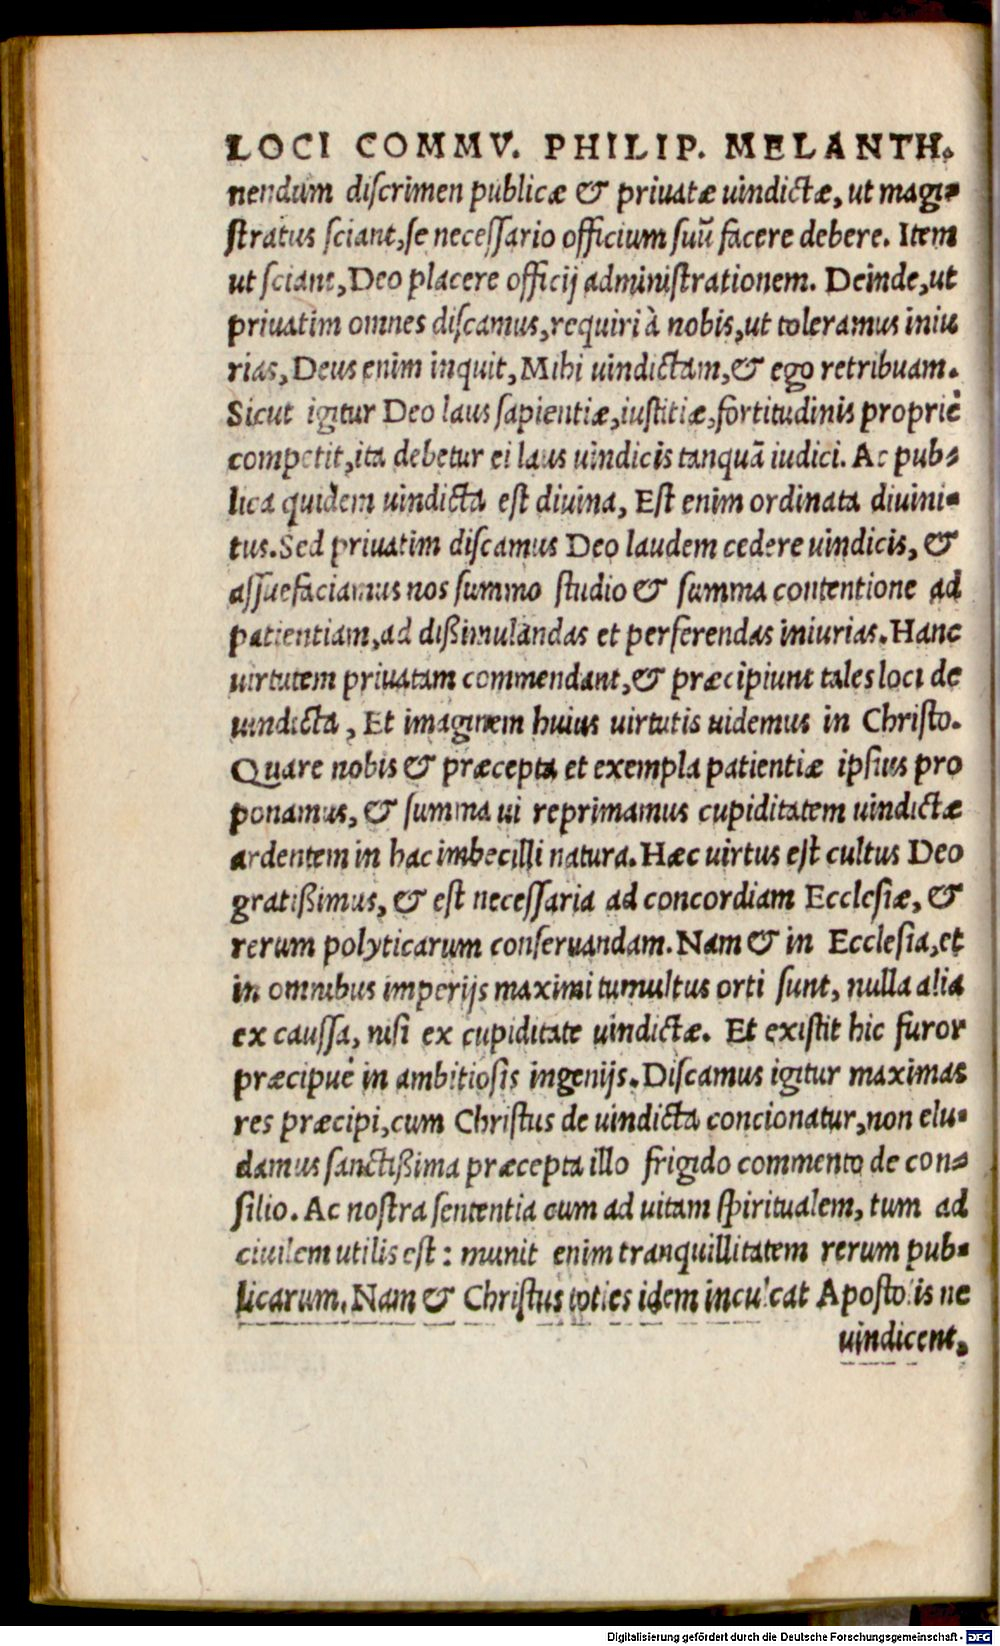 LOCI COMMV. PHILIP. MELANTH.
nendum discrimen publicæ & priuatæ uindictæ, ut magi-
stratus sciant, se necessario officium suũ facere debere. Item
ut sciant, Deo placere officij administrationem. Deinde, ut
priuatim omnes discamus, requiri à nobis, ut toleramus iniu
rias, Deus enim inquit, Mihi uindictam, & ego retribuam.
Sicut igitur Deo laus sapientiæ, iustitiæ, fortitudinis propriè
competit, ita debetur ei laus uindicis tanquã iudici. Ac pub-
lica quidem uindicta est diuina, Est enim ordinata diuini-
tus. Sed priuatim discamus Deo laudem cedere uindicis, &
assuefaciamus nos summo studio & summa contentione ad
patientiam, ad dißimulandas et perferendas iniurias. Hanc
uirtutem priuatam commendant, & præcipiunt tales loci de
uindicta, Et imaginem huius uirtutis uidemus in Christo.
Quare nobis & præcepta et exempla patientiæ ipsius pro
ponamus, & summa ui reprimamus cupiditatem uindictæ
ardentem in hac imbecilli natura. Hæc uirtus est cultus Deo
gratißimus, & est necessaria ad concordiam Ecclesiæ, &
rerum polyticarum conseruandam. Nam & in Ecclesia, et
in omnibus imperijs maximi tumultus orti sunt, nulla alia
ex caussa, nisi ex cupiditate uindictæ. Et existit hic furor
præcipuè in ambitiosis ingenijs. Discamus igitur maximas
res præcipi, cum Christus de uindicta concionatur, non elu-
damus sanctißima præcepta illo frigido commento de con-
silio. Ac nostra sententia cum ad uitam spiritualem, tum ad
ciuilem utilis est: munit enim tranquillitatem rerum pub-
licarum. Nam & Christus toties idem inculcat Apostolis ne
uindicent,
Digitalisierung gefördert durch die Deutsche Forschungsgemeinschaft - DFG